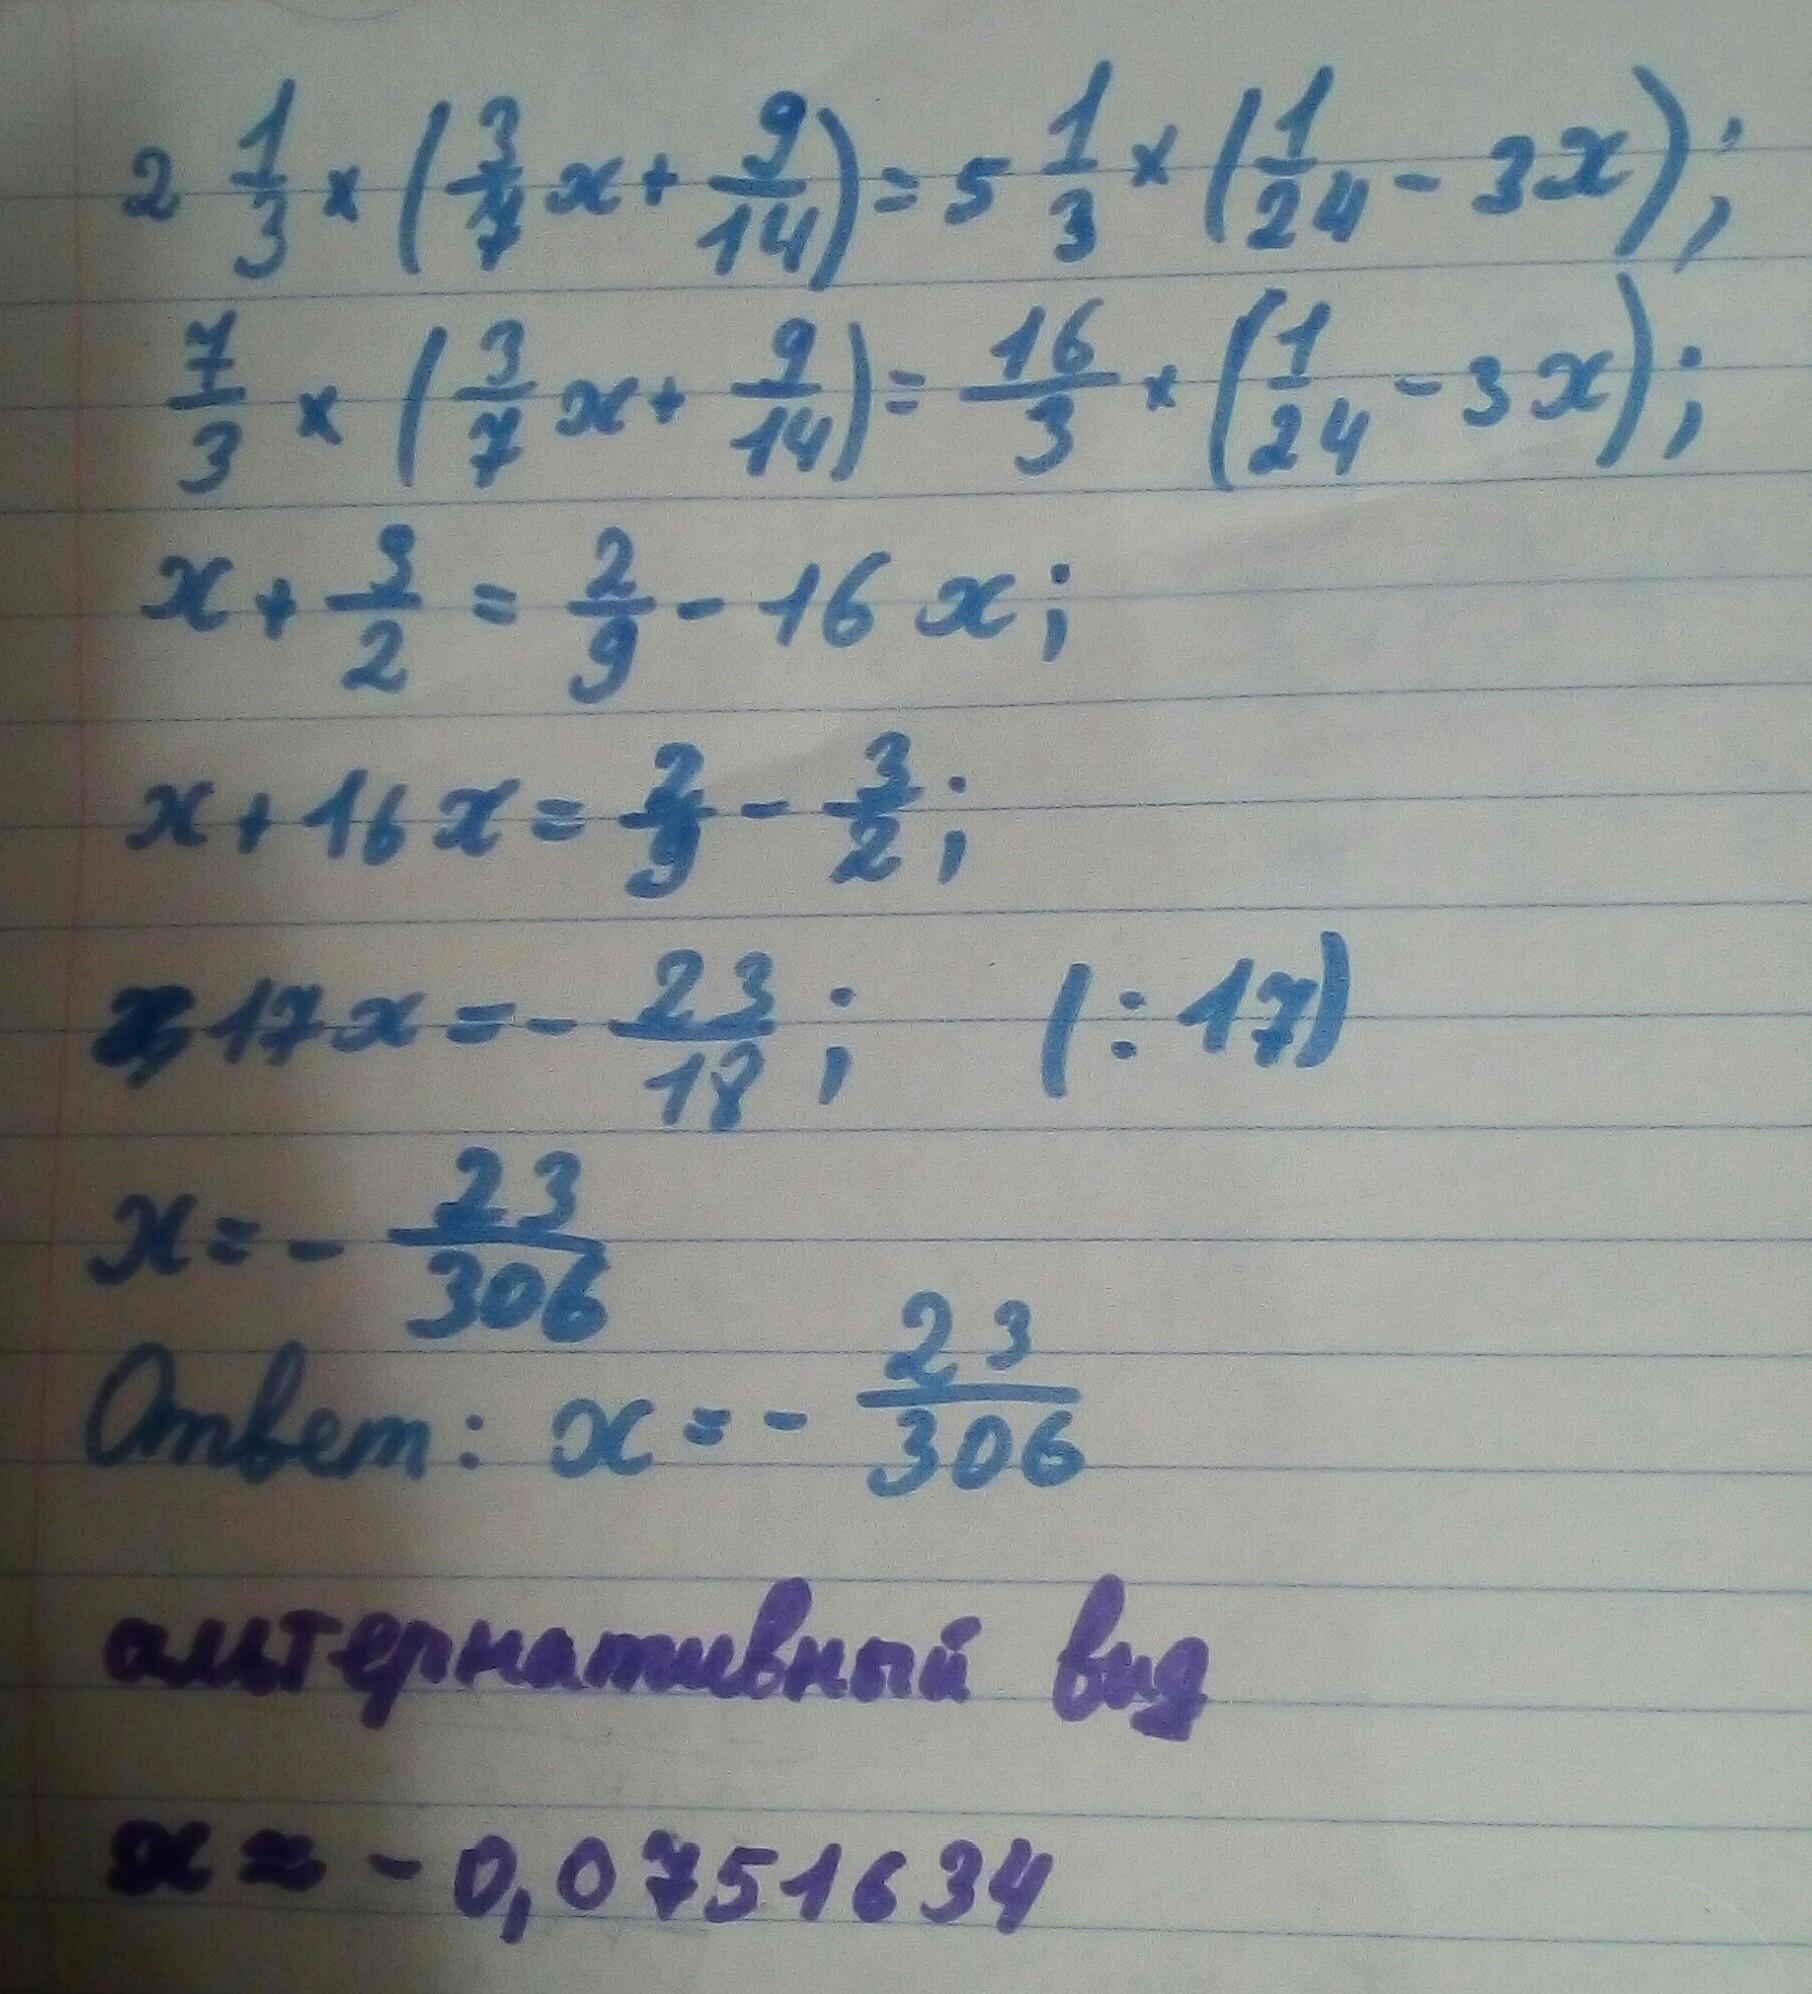 2 1/3 × (3/7 x + 9/14) = 5 1/3 × (1/24 - 3x);
7/3 × (3/7 x + 9/14) = 16/3 × (1/24 - 3x);
x + 3/2 = 2/9 - 16x;
x + 16x = 2/9 - 3/2;
17x = - 23/18; (:17)
x = - 23/306
Ответ: x = - 23/306
альтернативный вид
x ≈ - 0,0751634